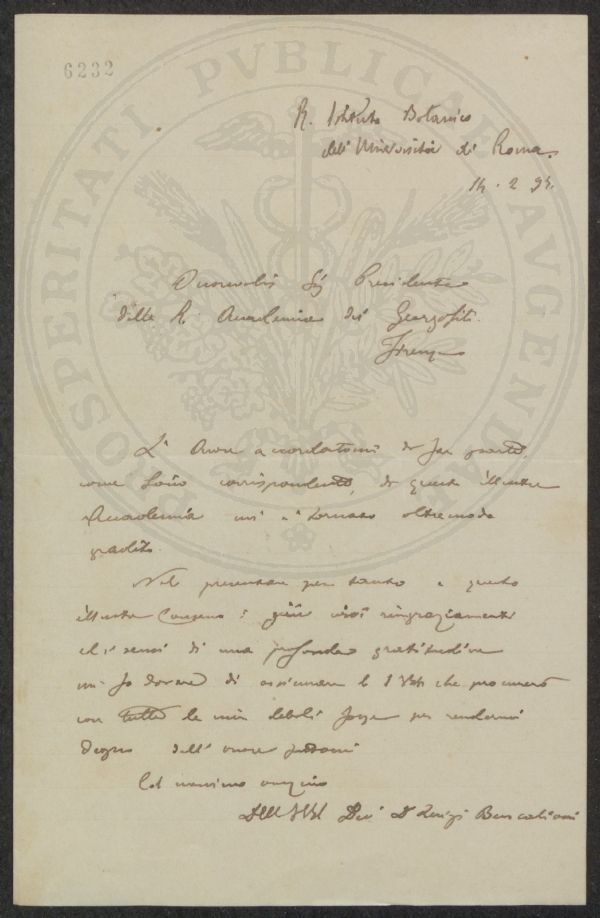 6232
PROSPERITATI PVBLICAE AVGENDAE
R. Istituto Botanico
dell' Università di Roma.
14. 2 95.
Onorevole Sig Presidente
della R. Accademia dei Georgofili
Firenze
L' Onore accordatomi di far parte
come Socio corrispondente, di questa illustre
Accademia mi è tornato oltremodo
gradito.
Nel presentare per tanto a questo
illustre Consesso i più vivi ringraziamenti
ed i sensi di una profonda gratitudine
mi fo dovere di assicurare le che procurerò
con tutte le mie deboli forze per rendermi
degno dell' onore
Col massimo ossequio
Dev D Luigi Buscalioni